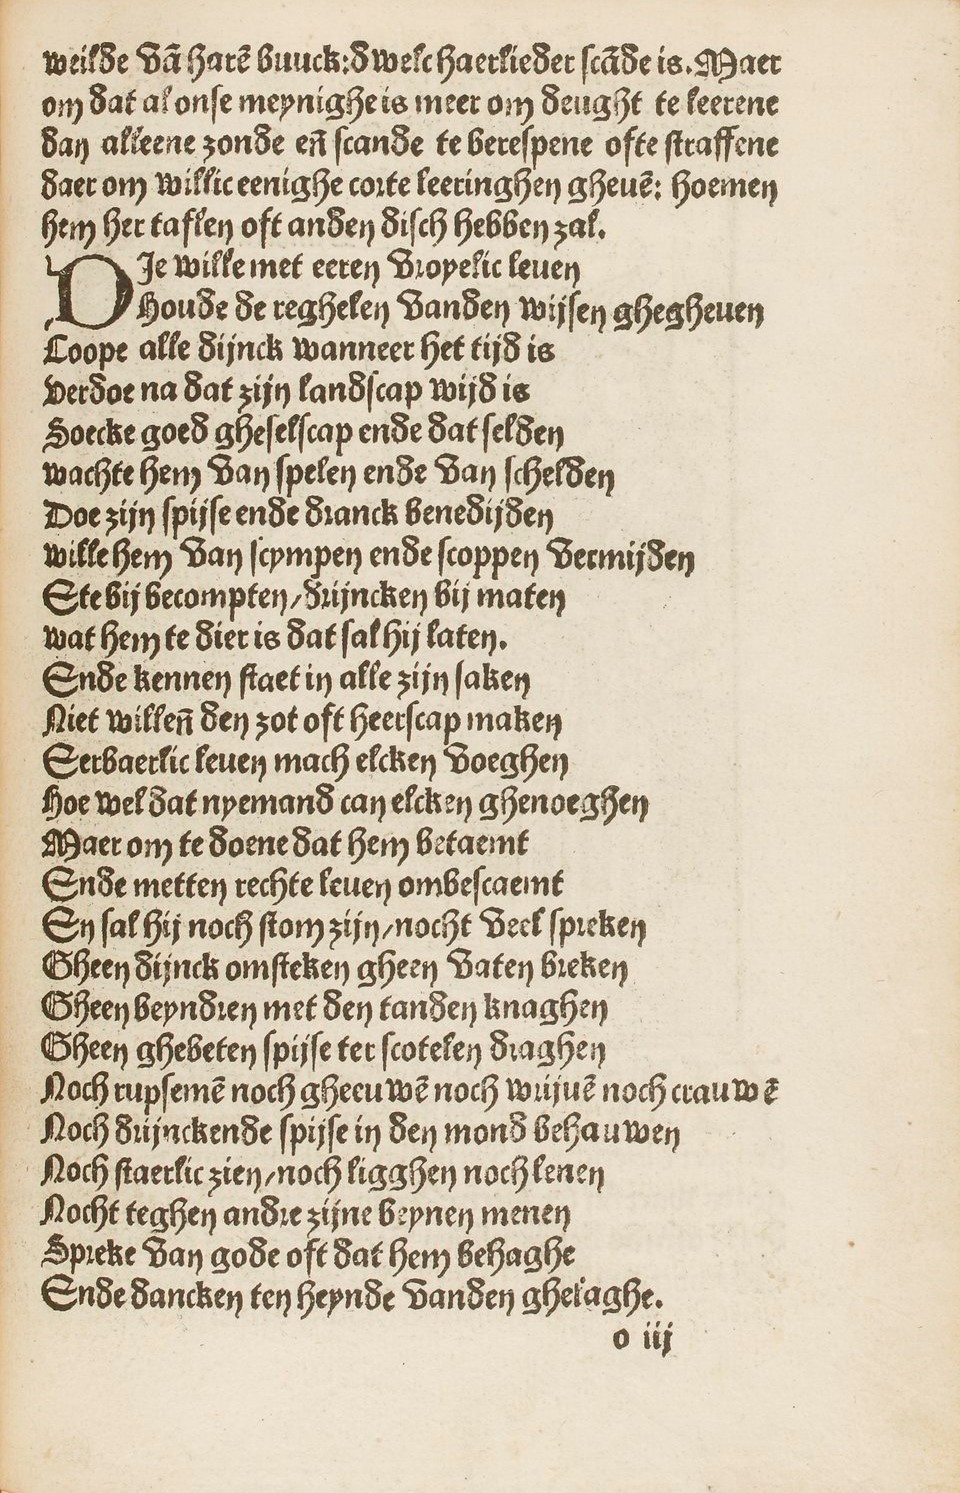 weilde vā harē buuck:dwelc haerlieder scāde is. Maer
om dat al onse meynighe is meer om deught te leerene
dan alleene zonde eñ scande te berespene ofte straffene
daer om willic eenighe corte leeringhen gheuē: hoemen
hem her taflen oft anden disch hebben zal.
DIe wille met eeren vroyelic leuen
Houde de reghelen vanden wijsen ghegheuen
Coope alle dijnck wanneer het tijd is
Verdoe na dat zijn landscap wijd is
Soecke goed gheselscap ende dat selden
wachte hem van spelen ende van schelden
Doe zijn spijse ende dranck benedijden
wille hem van scympen ende scoppen vermijden
Ete bij becompten/drijncken bij maten
wat hem te dier is dat sal hij laten.
Ende kennen staet in alle zijn saken
Niet willeñ den zot oft heerscap maken
Eerbaerlic leuen mach elcken voeghen
Hoe wel dat nyemand can elcken ghenoeghen
Maer om te doene dat hem betaemt
Ende metten rechte leuen ombescaemt
En sal hij noch stom zijn/nocht veel spreken
Gheen dijnck omsteken gheen vaten breken
Gheen beyndren met den tanden knaghen
Gheen ghebeten spijse ter scotelen draghen
Noch rupsemē noch gheeuwē noch wrijuē noch crauwē
Noch drijnckende spijse in den mond behauwen
Noch staerlic zien/noch ligghen noch lenen
Nocht teghen andre zijne beynen menen
Spreke van gode oft dat hem behaghe
Ende dancken ten heynde vanden ghelaghe.
o iij